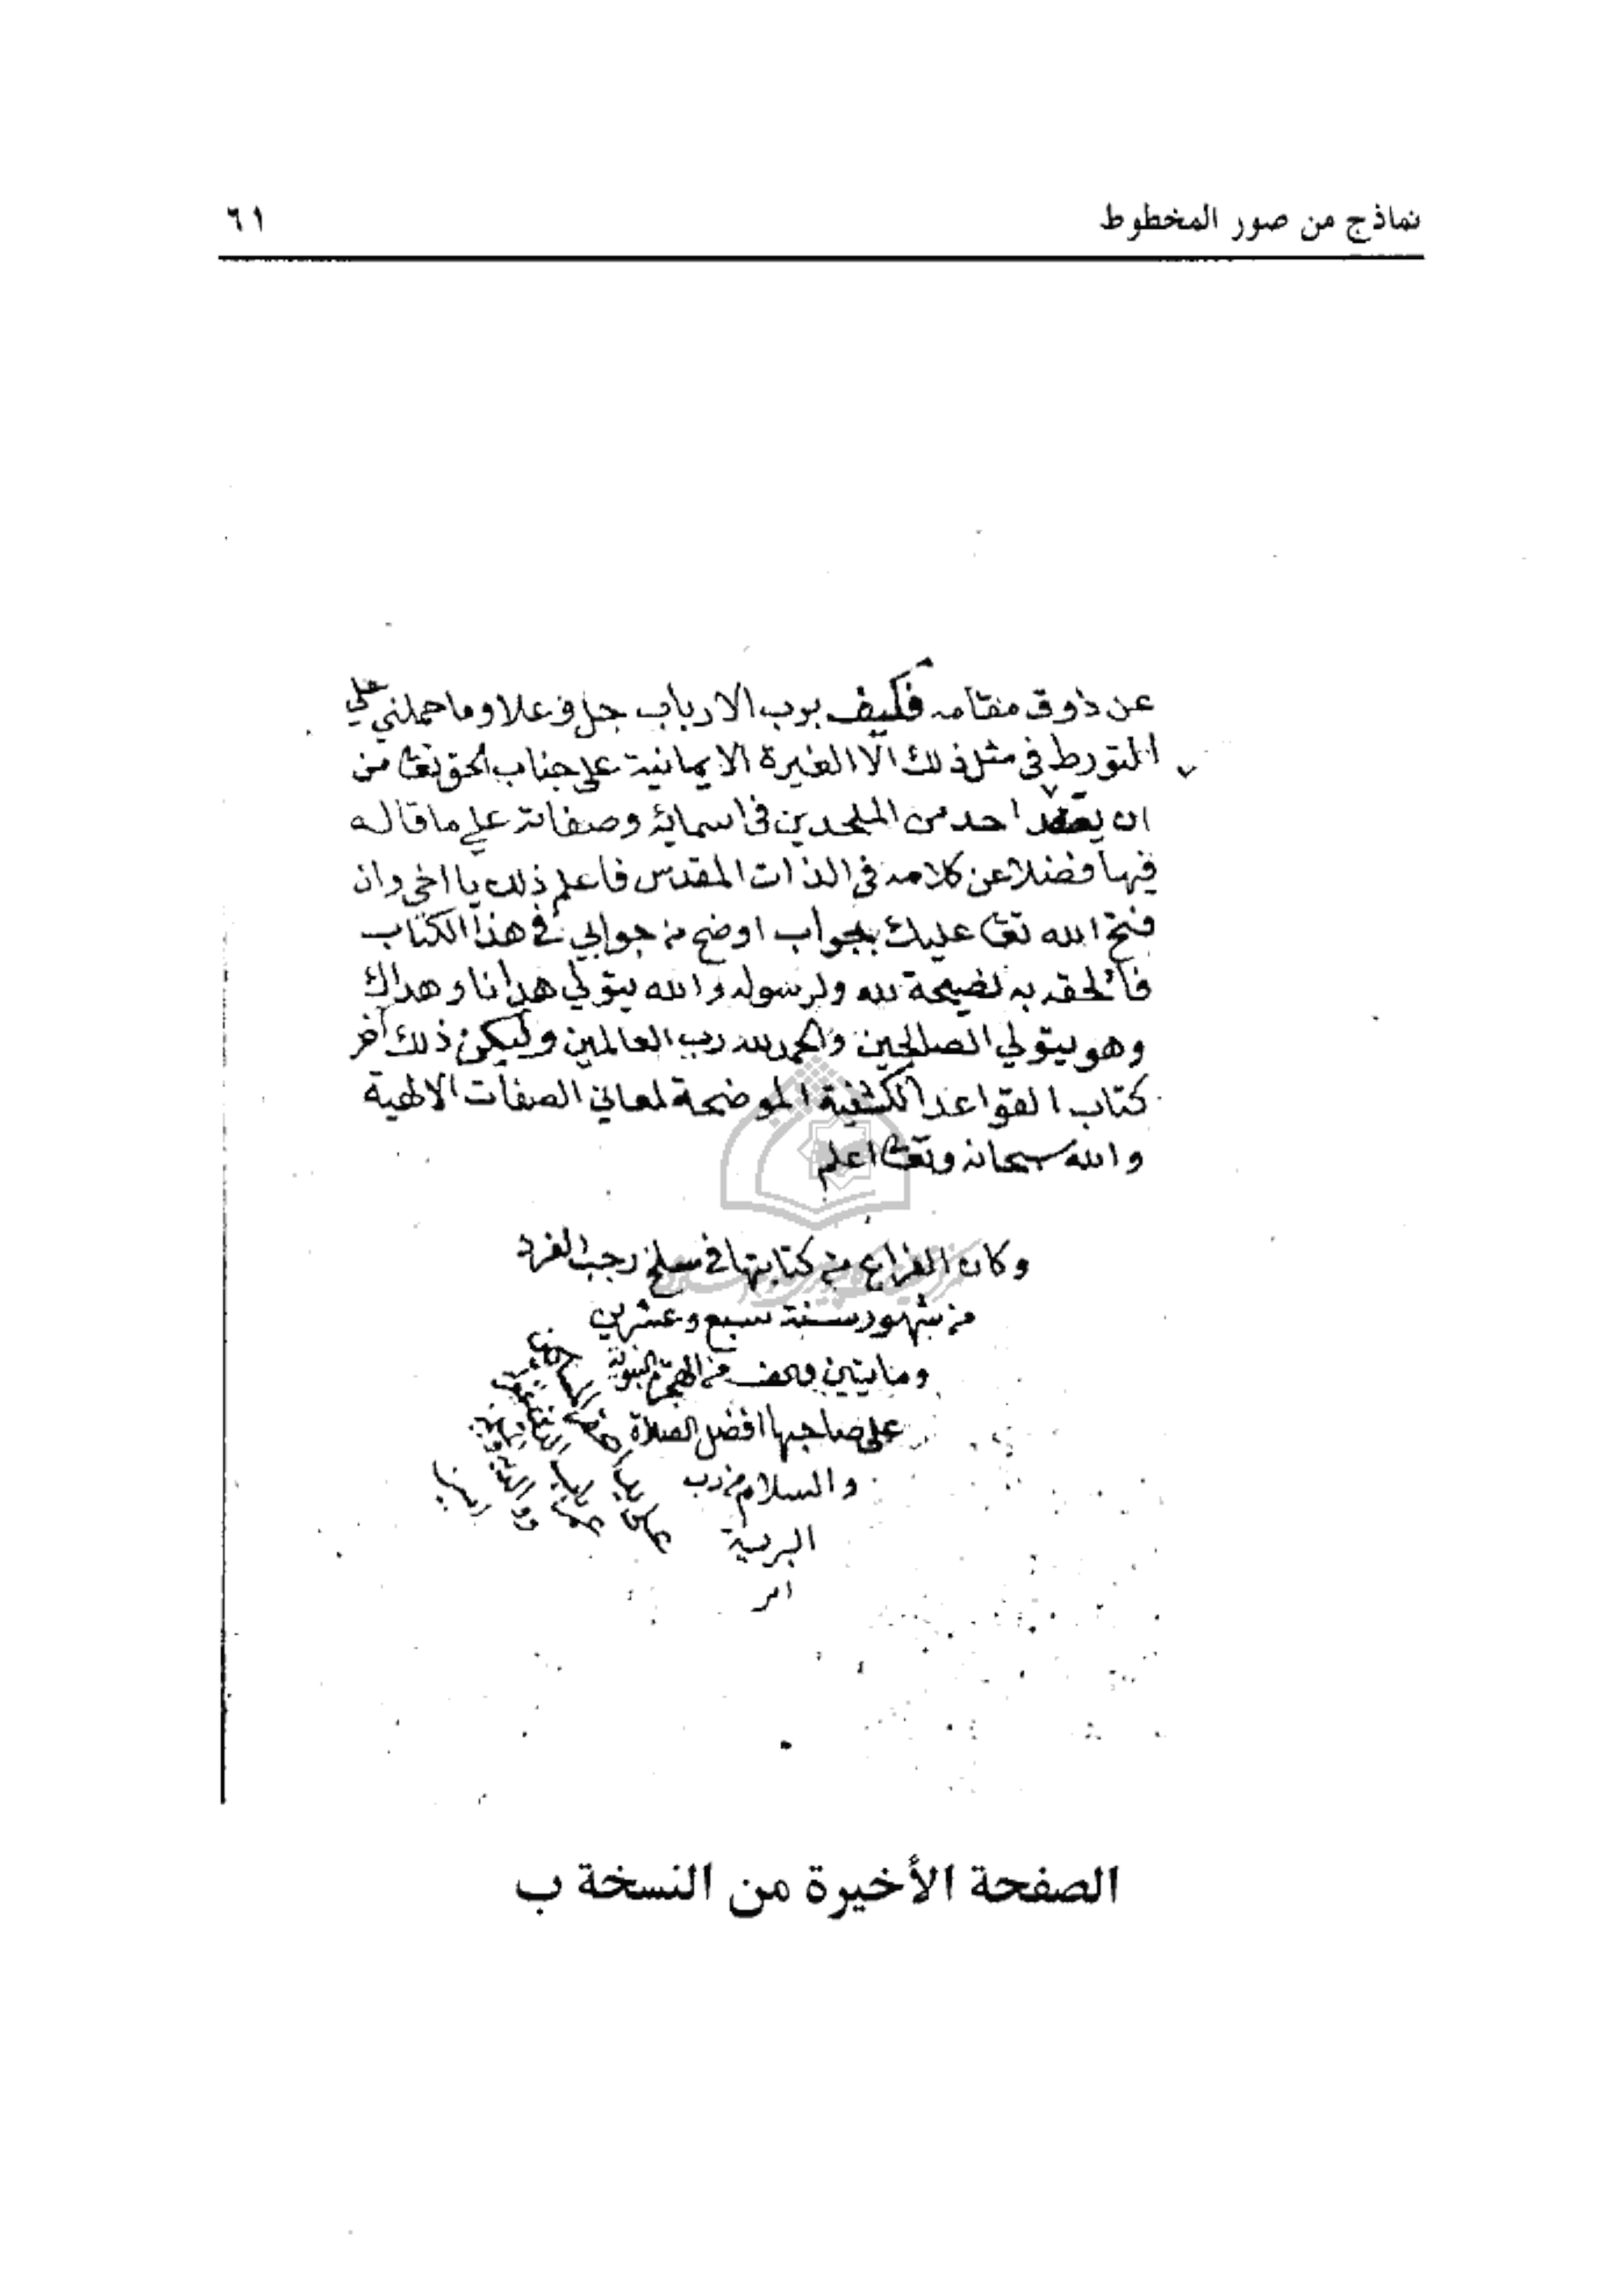 نماذج من صور المخطوط
٦١
عن ذوق مقامه فكيف برب الارباب جل وعلا وما حملني علي
التورط في مثل ذلك الا الغيرة الايمانية علي جناب الحق تعا من
ان يعتقد احد من الملحدين في اسمائه وصفاته علي ما قاله
فيها فضلا عن كلامه في الذات المقدس فاعلم ذلك يا اخي وان
فتح الله تعا عليك بجواب اوضح من جوابي في هذا الكتاب
فالحقه به نصيحة لله ولرسوله والله يتولي هدانا وهداك
وهو يتولي الصالحين والحمد لله رب العالمين وليكن ذلك آخر
كتاب القواعد الكشفية الموضحة لمعاني الصفات الالهية
والله سبحانه وتعا اعلم
وكان الفراغ من كتابتها في سلخ رجب الفرد
من شهور سنة سبع وعشرين
ومايتين والف من الهجرة النبوية
علي صاحبها افضل الصلاة
والسلام من رب
البرية
الصفحة الأخيرة من النسخة ب